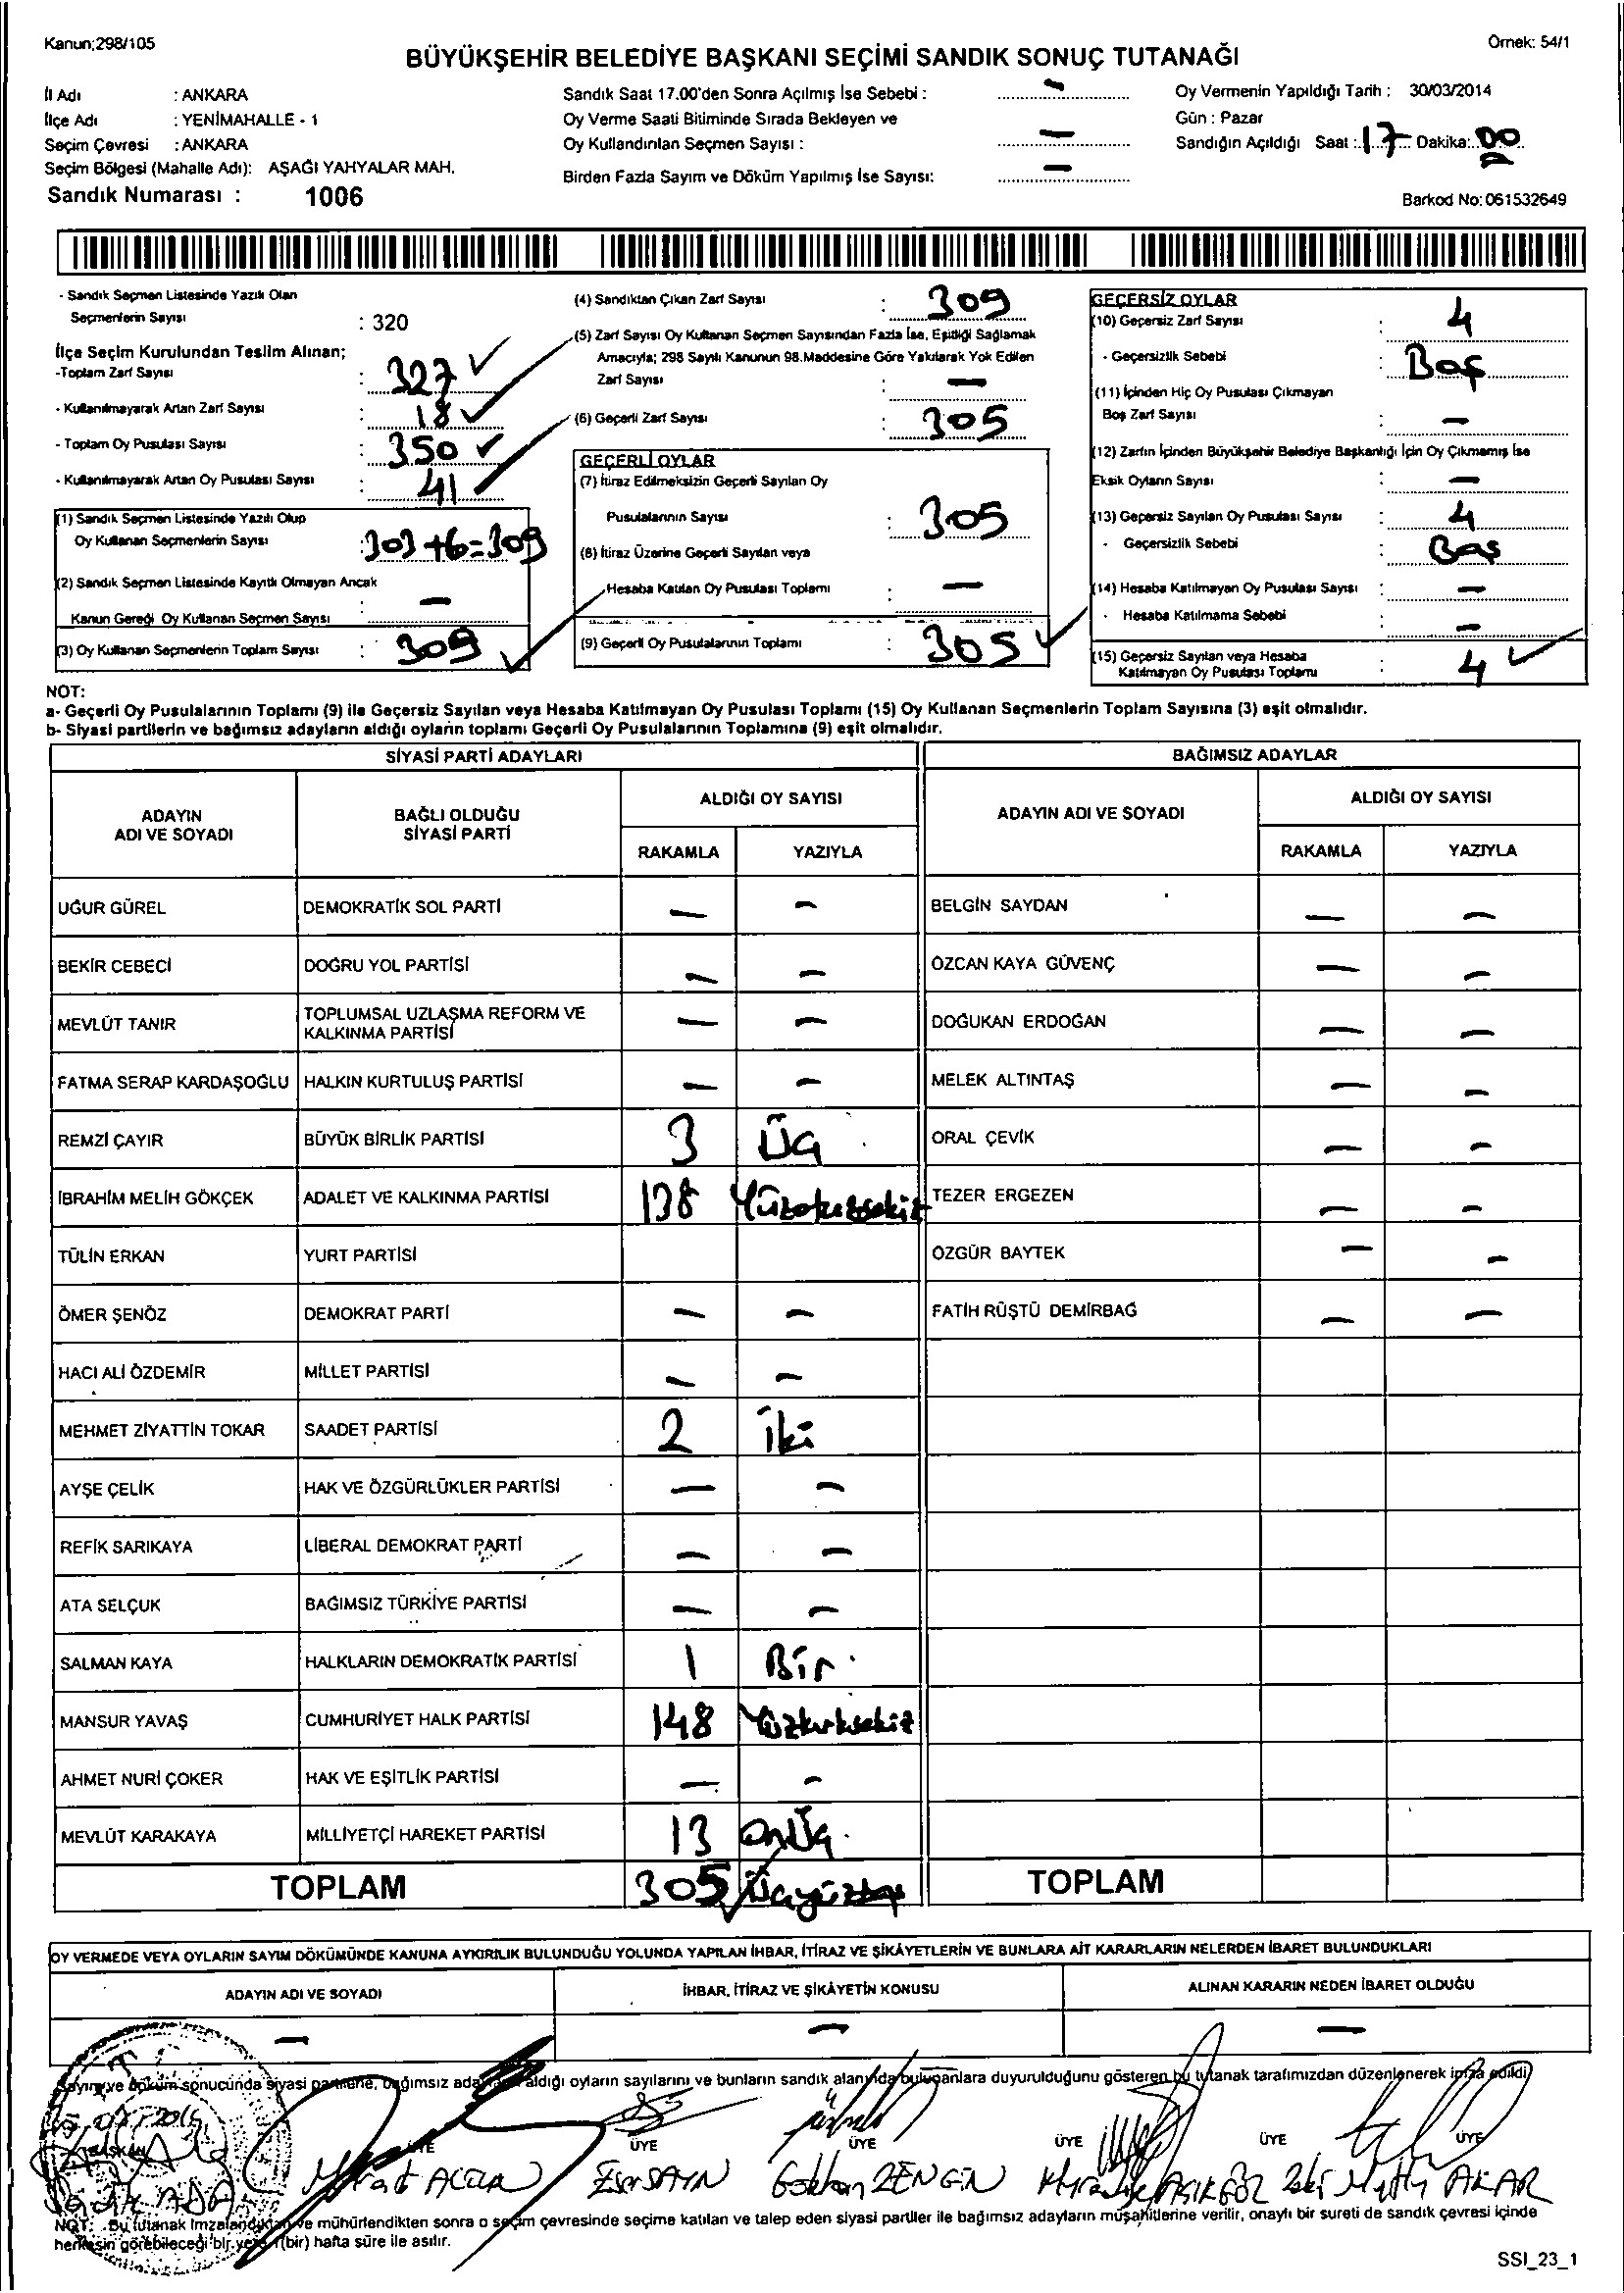 Kanun;298/105
Örnek: 54/1
BÜYÜKŞEHİR BELEDİYE BAŞKANI SEÇİMİ SANDIK SONUÇ TUTANAĞI
İl Adı : ANKARA
İlçe Adı : YENİMAHALLE - 1
Seçim Çevresi : ANKARA
Seçim Bölgesi (Mahalle Adı): AŞAĞI YAHYALAR MAH.
Sandık Numarası : 1006
Sandık Saat 17.00'den Sonra Açılmış İse Sebebi : –
Oy Verme Saati Bitiminde Sırada Bekleyen ve
Oy Kullandırılan Seçmen Sayısı : –
Birden Fazla Sayım ve Döküm Yapılmış İse Sayısı: –
Oy Vermenin Yapıldığı Tarih : 30/03/2014
Gün : Pazar
Sandığın Açıldığı Saat : 17 Dakika: 00
Barkod No: 061532649
- Sandık Seçmen Listesinde Yazılı Olan
Seçmenlerin Sayısı : 320
İlçe Seçim Kurulundan Teslim Alınan;
-Toplam Zarf Sayısı : 327
- Kullanılmayarak Artan Zarf Sayısı : 18
- Toplam Oy Pusulası Sayısı : 350
- Kullanılmayarak Artan Oy Pusulası Sayısı : 41
(1) Sandık Seçmen Listesinde Yazılı Olup
Oy Kullanan Seçmenlerin Sayısı : 303+6=309
(2) Sandık Seçmen Listesinde Kayıtlı Olmayan Ancak
Kanun Gereği Oy Kullanan Seçmen Sayısı : –
(3) Oy Kullanan Seçmenlerin Toplam Sayısı : 309
(4) Sandıktan Çıkan Zarf Sayısı : 309
(5) Zarf Sayısı Oy Kullanan Seçmen Sayısından Fazla İse, Eşitliği Sağlamak
Amacıyla; 298 Sayılı Kanunun 98.Maddesine Göre Yakılarak Yok Edilen
Zarf Sayısı : –
(6) Geçerli Zarf Sayısı : 305
GEÇERLİ OYLAR
(7) İtiraz Edilmeksizin Geçerli Sayılan Oy
Pusulalarının Sayısı : 305
(8) İtiraz Üzerine Geçerli Sayılan veya
Hesaba Katılan Oy Pusulası Toplamı : –
(9) Geçerli Oy Pusulalarının Toplamı : 305
GEÇERSİZ OYLAR
(10) Geçersiz Zarf Sayısı : 4
- Geçersizlik Sebebi : Boş
(11) İçinden Hiç Oy Pusulası Çıkmayan
Boş Zarf Sayısı : –
(12) Zarfın İçinden Büyükşehir Belediye Başkanlığı İçin Oy Çıkmamış İse
Eksik Oyların Sayısı : –
(13) Geçersiz Sayılan Oy Pusulası Sayısı : 4
- Geçersizlik Sebebi : Boş
(14) Hesaba Katılmayan Oy Pusulası Sayısı : –
- Hesaba Katılmama Sebebi : –
(15) Geçersiz Sayılan veya Hesaba
Katılmayan Oy Pusulası Toplamı : 4
NOT:
a- Geçerli Oy Pusulalarının Toplamı (9) ile Geçersiz Sayılan veya Hesaba Katılmayan Oy Pusulası Toplamı (15) Oy Kullanan Seçmenlerin Toplam Sayısına (3) eşit olmalıdır.
b- Siyasi partilerin ve bağımsız adayların aldığı oyların toplamı Geçerli Oy Pusulalarının Toplamına (9) eşit olmalıdır.
SİYASİ PARTİ ADAYLARI
BAĞIMSIZ ADAYLAR
ADAYIN ADI VE SOYADI
BAĞLI OLDUĞU SİYASİ PARTİ
ALDIĞI OY SAYISI
RAKAMLA YAZIYLA
ADAYIN ADI VE SOYADI
ALDIĞI OY SAYISI
RAKAMLA YAZIYLA
UĞUR GÜREL DEMOKRATİK SOL PARTİ – – BELGİN SAYDAN – –
BEKİR CEBECİ DOĞRU YOL PARTİSİ – – ÖZCAN KAYA GÜVENÇ – –
MEVLÜT TANIR TOPLUMSAL UZLAŞMA REFORM VE KALKINMA PARTİSİ – – DOĞUKAN ERDOĞAN – –
FATMA SERAP KARDAŞOĞLU HALKIN KURTULUŞ PARTİSİ – – MELEK ALTINTAŞ – –
REMZİ ÇAYIR BÜYÜK BİRLİK PARTİSİ 3 Üç ORAL ÇEVİK – –
İBRAHİM MELİH GÖKÇEK ADALET VE KALKINMA PARTİSİ 138 Yüzotuzsekiz TEZER ERGEZEN – –
TÜLİN ERKAN YURT PARTİSİ ÖZGÜR BAYTEK – –
ÖMER ŞENÖZ DEMOKRAT PARTİ – – FATİH RÜŞTÜ DEMİRBAĞ – –
HACI ALİ ÖZDEMİR MİLLET PARTİSİ – –
MEHMET ZİYATTİN TOKAR SAADET PARTİSİ 2 İki
AYŞE ÇELİK HAK VE ÖZGÜRLÜKLER PARTİSİ – –
REFİK SARIKAYA LİBERAL DEMOKRAT PARTİ – –
ATA SELÇUK BAĞIMSIZ TÜRKİYE PARTİSİ – –
SALMAN KAYA HALKLARIN DEMOKRATİK PARTİSİ 1 Bir
MANSUR YAVAŞ CUMHURİYET HALK PARTİSİ 148 Yüzkırksekiz
AHMET NURİ ÇOKER HAK VE EŞİTLİK PARTİSİ – –
MEVLÜT KARAKAYA MİLLİYETÇİ HAREKET PARTİSİ 13 Onüç
TOPLAM 305 Üçyüzbeş TOPLAM
OY VERMEDE VEYA OYLARIN SAYIM DÖKÜMÜNDE KANUNA AYKIRILIK BULUNDUĞU YOLUNDA YAPILAN İHBAR, İTİRAZ VE ŞİKÂYETLERİN VE BUNLARA AİT KARARLARIN NELERDEN İBARET BULUNDUKLARI
ADAYIN ADI VE SOYADI İHBAR, İTİRAZ VE ŞİKÂYETİN KONUSU ALINAN KARARIN NEDEN İBARET OLDUĞU
– – –
Sayım ve döküm sonucunda siyasi partilerine, bağımsız adayların aldığı oyların sayılarını ve bunların sandık alanında bulunanlara duyurulduğunu gösteren bu tutanak tarafımızdan düzenlenerek imza edildi
BAŞKAN ÜYE ÜYE ÜYE ÜYE ÜYE ÜYE
Eser SAYIN Gökhan ZENGİN AÇIKGÖZ AKAR
NOT: Bu tutanak imzalandıktan ve mühürlendikten sonra o seçim çevresinde seçime katılan ve talep eden siyasi partiler ile bağımsız adayların müşahitlerine verilir, onaylı bir sureti de sandık çevresi içinde
herkesin görebileceği bir yere (bir) hafta süre ile asılır.
SSI_23_1